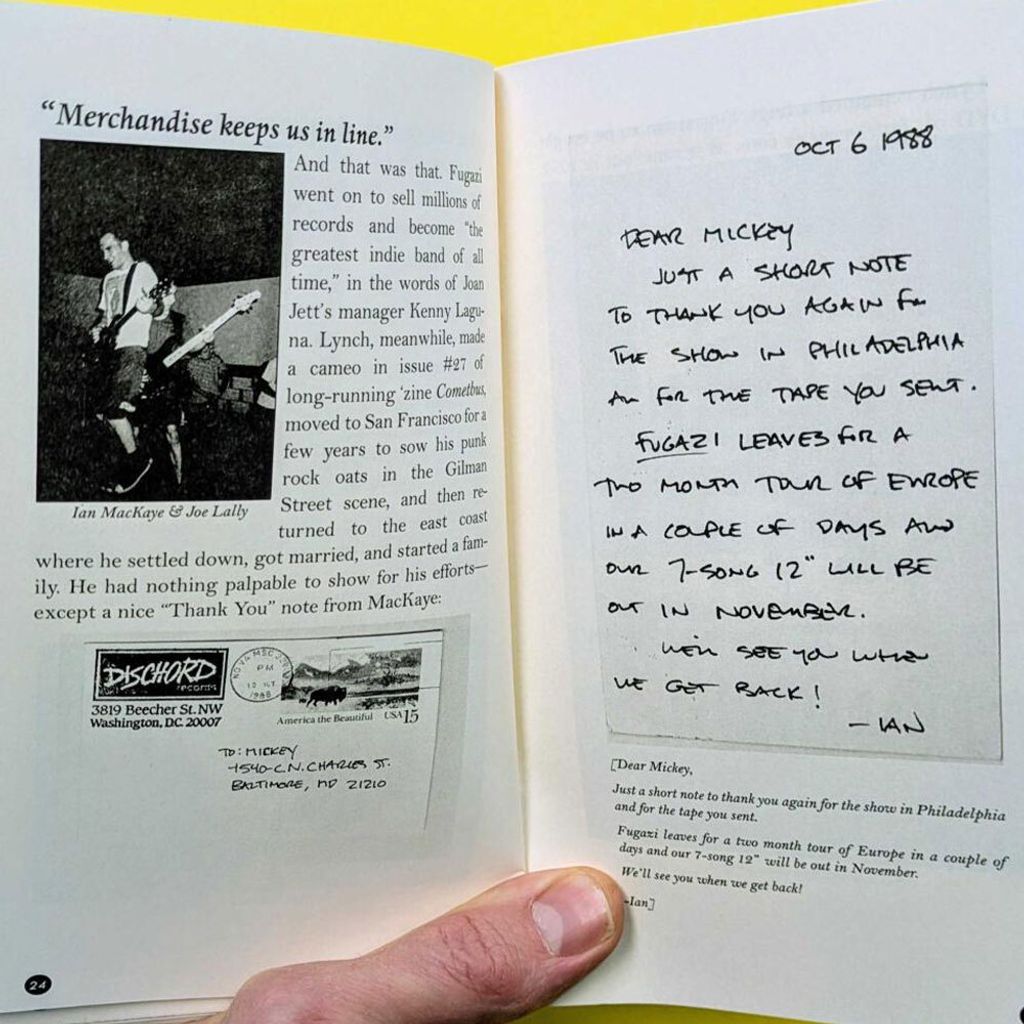 “Merchandise keeps us in line.”
And that was that. Fugazi
went on to sell millions of
records and become “the
greatest indie band of all
time,” in the words of Joan
Jett’s manager Kenny Lagu-
na. Lynch, meanwhile, made
a cameo in issue #27 of
long-running ’zine Cometbus,
moved to San Francisco for a
few years to sow his punk
rock oats in the Gilman
Street scene, and then re-
turned to the east coast
Ian MacKaye & Joe Lally
where he settled down, got married, and started a fam-
ily. He had nothing palpable to show for his efforts—
except a nice “Thank You” note from MacKaye:
DISCHORD
records
3819 Beecher St. NW
Washington, DC. 20007
PM
1988
America the Beautiful USA 15
TO: MICKEY
4540-C N. CHARLES ST.
BALTIMORE, MD 21210
24
OCT 6 1988
DEAR MICKEY
JUST A SHORT NOTE
TO THANK YOU AGAIN FOR
THE SHOW IN PHILADELPHIA
AN FOR THE TAPE YOU SENT.
FUGAZI LEAVES FOR A
TWO MONTH TOUR OF EUROPE
IN A COUPLE OF DAYS AND
OUR 7-SONG 12" WILL BE
OUT IN NOVEMBER.
WE'LL SEE YOU WHEN
WE GET BACK!
— IAN
[Dear Mickey,
Just a short note to thank you again for the show in Philadelphia
and for the tape you sent.
Fugazi leaves for a two month tour of Europe in a couple of
days and our 7-song 12” will be out in November.
We’ll see you when we get back!
-Ian]